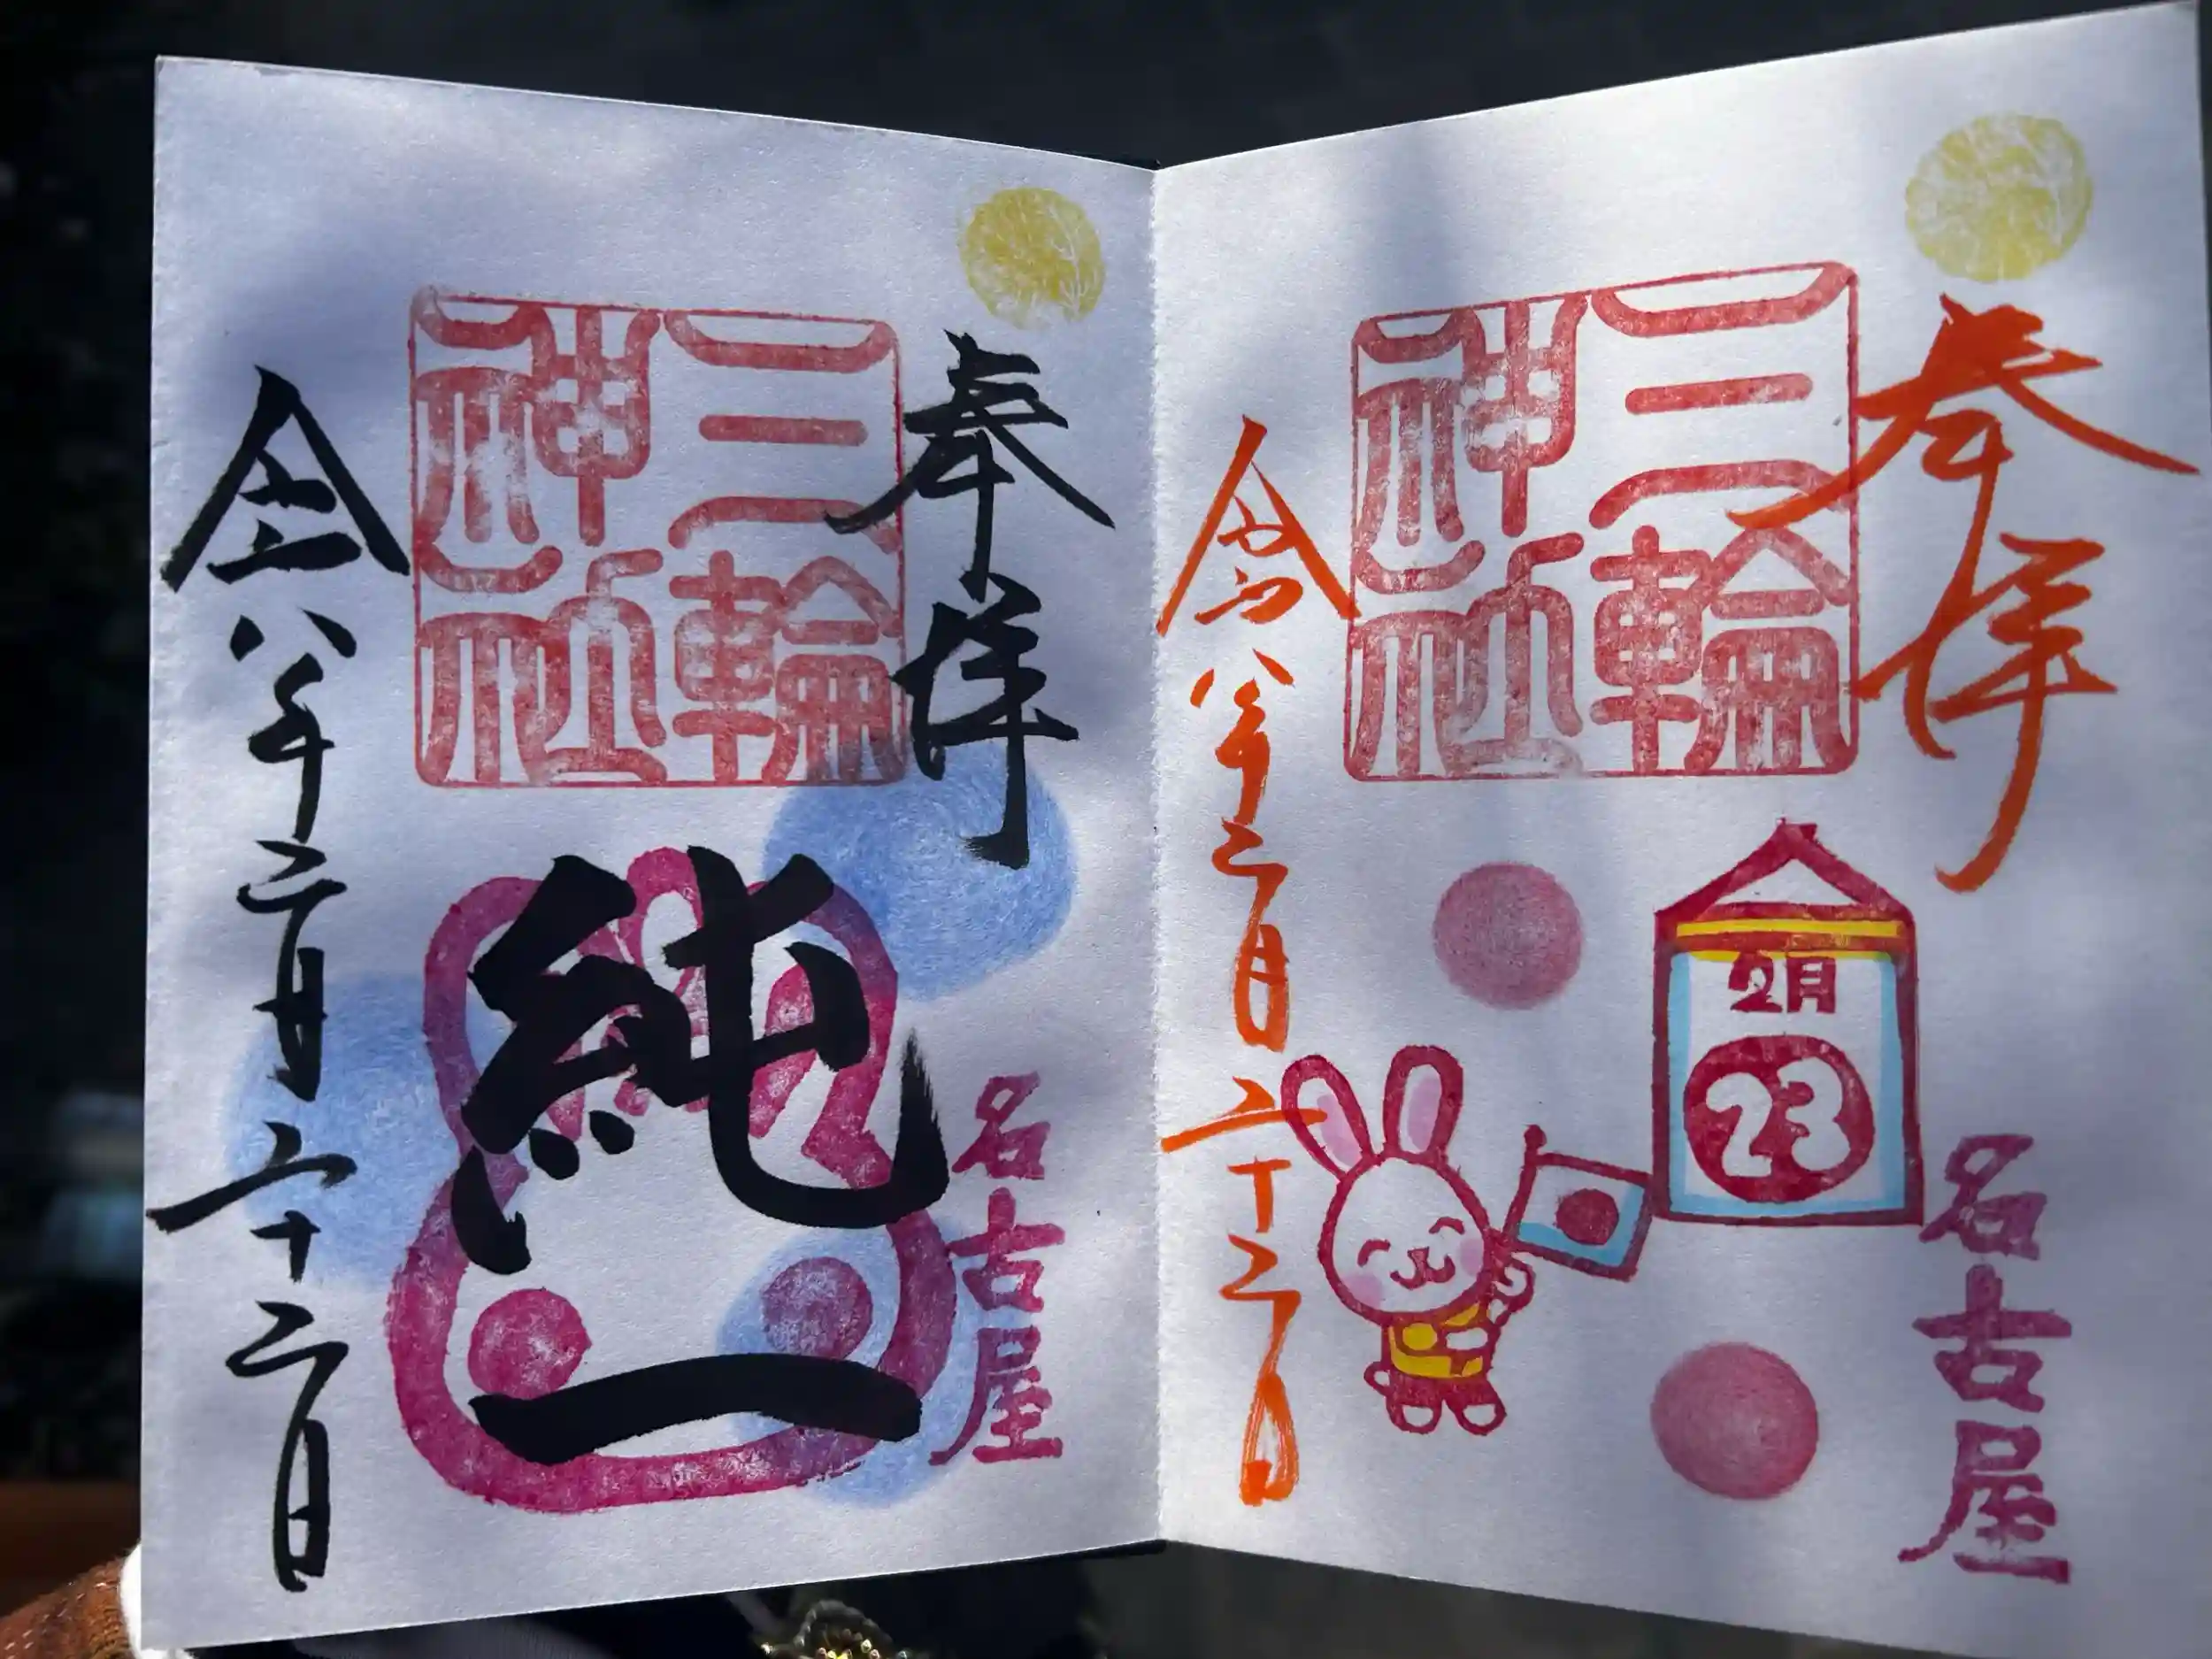 奉拝
三輪
神社
2月
23
名古屋
令和八年二月二十二日
奉拝
三輪
神社
純一
名古屋
令和八年二月二十二日